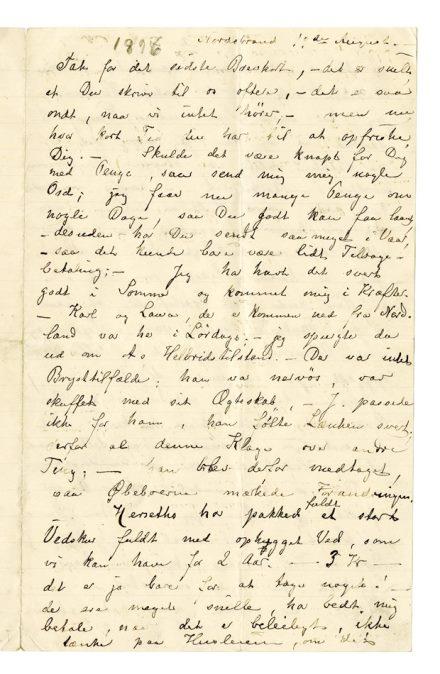 1896 Nordstrand 11 de August.
Tak for det sidste Brevkort, – det er snilt
at Du skriver til os oftere, – det er saa
ondt, naar vi intet hører, – men nu
hvor kort Tid Du har til at opfriske
Dig. – Skulde det være knapt for Dig
med Penge, saa send mig nogle
Ord; jeg faar nu mange Penge om
nogle Dage, saa Du godt kan faa laan
– desuden har Du sendt saa meget i Vaar,
– saa det kunde bare være lidt Tilbage-
betaling; – Jeg ha havt det svært
godt i Sommer og kommet mig i Kræfter.
– Karl og Laura, de er kommen ned fra Nord-
land var her i Lørdags; – jeg spurgte da
ud om A s Helbredstilstand. – Der var intet
Brysttilfælde; han var nervøs, var
skuffet med sit Ægteskab, – J. passede
ikke for ham, han følte Lænken svært;
derfor al denne Klage over andre
Ting; – han blev derfor modtaget,
saa Øboerne mærkede Forandringen.
– Herseths har pakket et stort
Vedskur fuldt med ophugget Ved, som
vi kan have for 2 Aar. – 3 Kr –
det er jo bare for at tage noget! –
de ere meget snille, ha bedt mig
betale, naar det er beleiligt, ikke
tænke paa Huslejen, om det